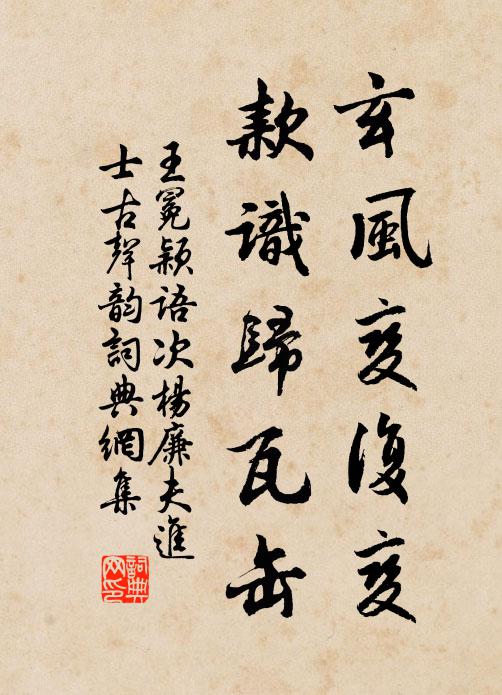 玄風变復变
款識歸瓦缶
王冕頴語次楊廉夫進
士古聲韵詞典網集
詞典
网印